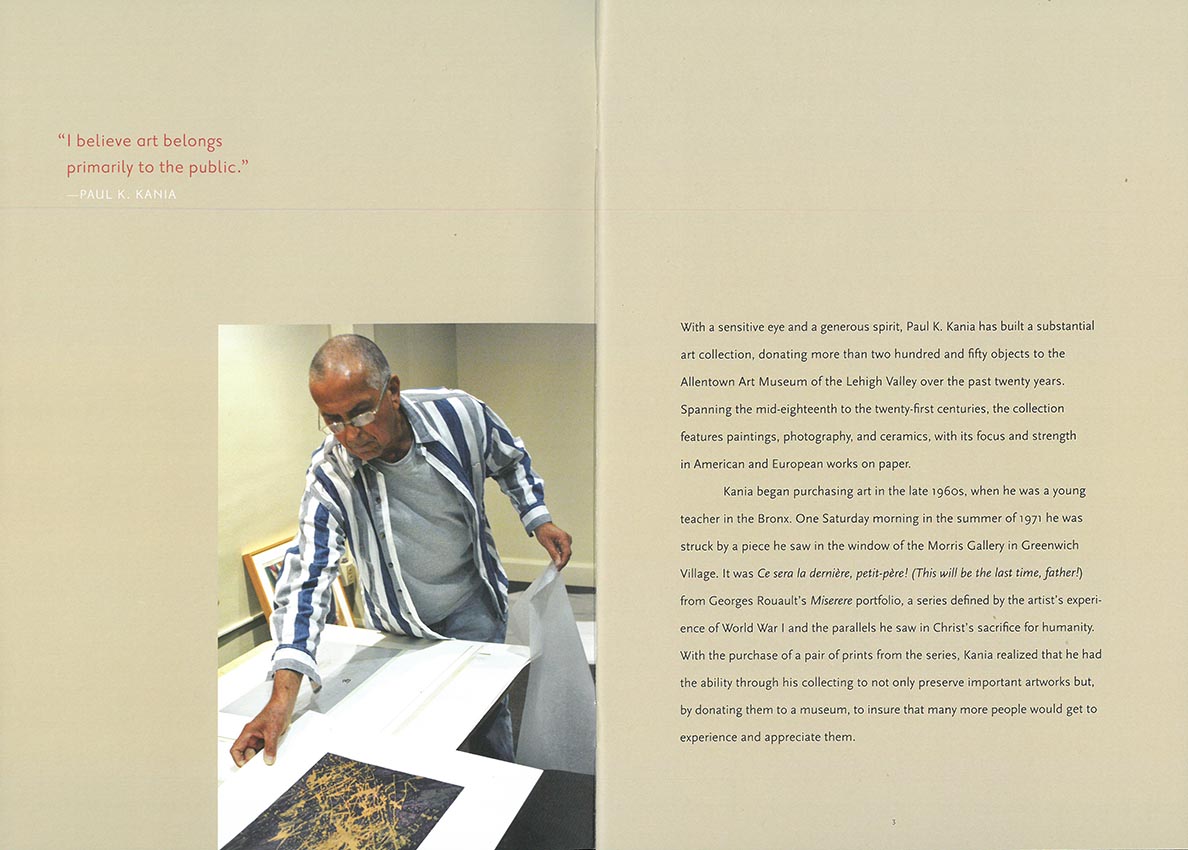 “I believe art belongs
primarily to the public.”
—PAUL K. KANIA
With a sensitive eye and a generous spirit, Paul K. Kania has built a substantial
art collection, donating more than two hundred and fifty objects to the
Allentown Art Museum of the Lehigh Valley over the past twenty years.
Spanning the mid-eighteenth to the twenty-first centuries, the collection
features paintings, photography, and ceramics, with its focus and strength
in American and European works on paper.
Kania began purchasing art in the late 1960s, when he was a young
teacher in the Bronx. One Saturday morning in the summer of 1971 he was
struck by a piece he saw in the window of the Morris Gallery in Greenwich
Village. It was Ce sera la dernière, petit-père! (This will be the last time, father!)
from Georges Rouault’s Miserere portfolio, a series defined by the artist’s experi-
ence of World War I and the parallels he saw in Christ’s sacrifice for humanity.
With the purchase of a pair of prints from the series, Kania realized that he had
the ability through his collecting to not only preserve important artworks but,
by donating them to a museum, to insure that many more people would get to
experience and appreciate them.
3